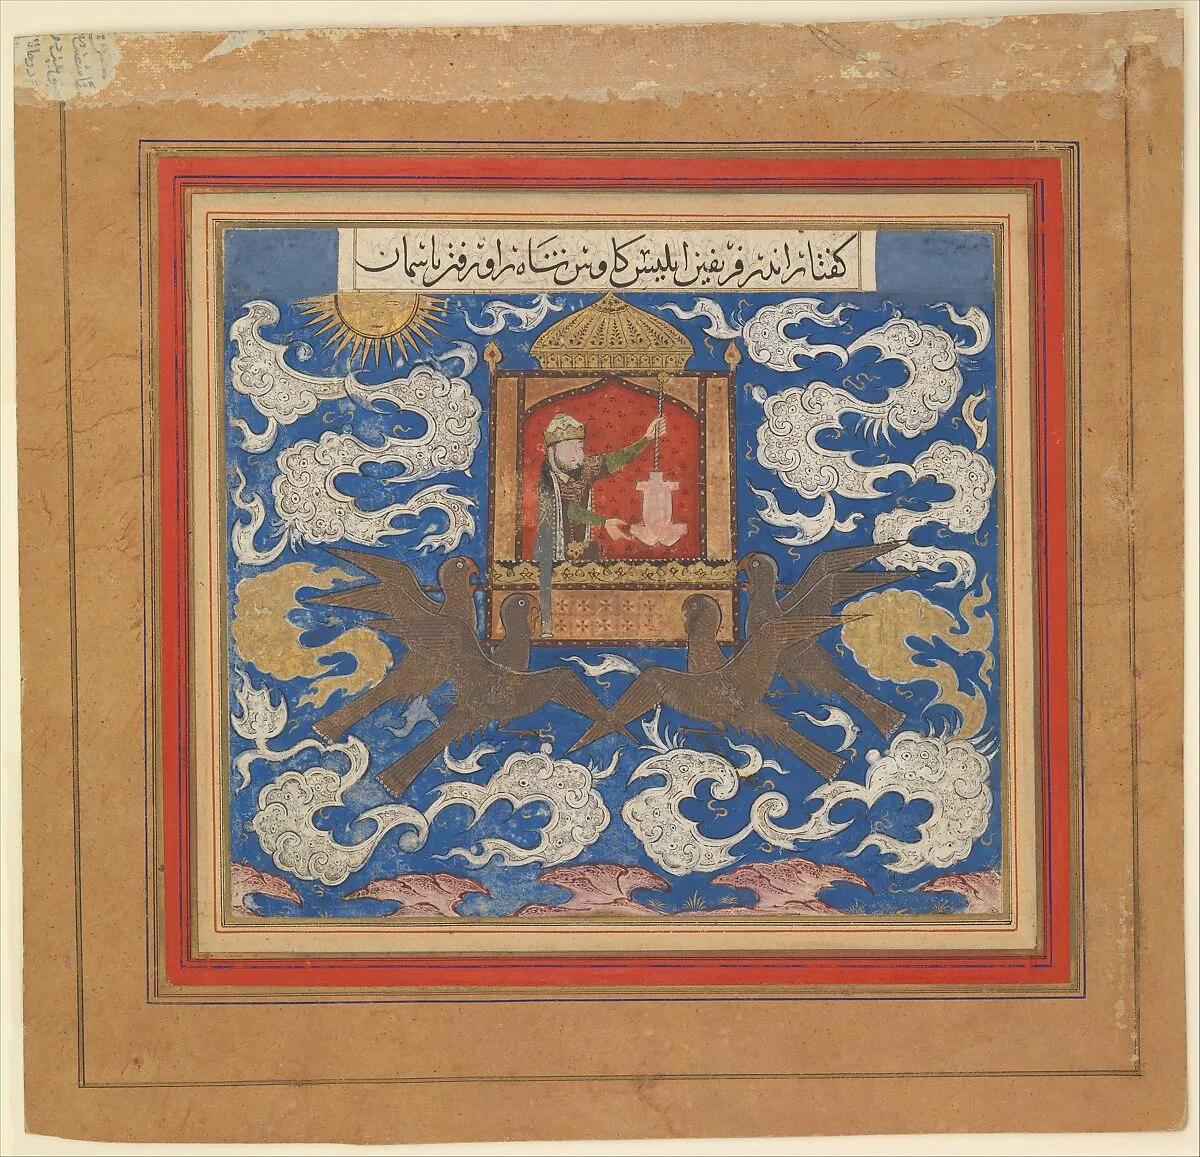 گفتار اندر فریفتن ابلیس کاوس شاه را و رفتن باسمان